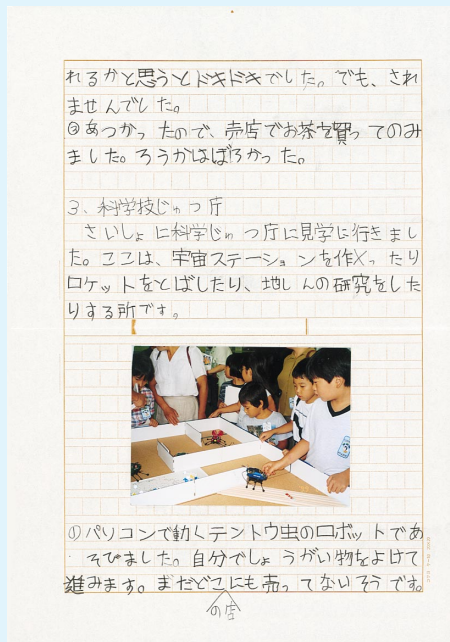 れるかと思うとドキドキでした。でも、され
ませんでした。
③あつかったので、売店でお茶を買ってのみ
ました。ろうかはぼろかった。
3、科学技じゅつ庁
さいしょに科学じゅつ庁に見学に行きまし
た。ここは、宇宙ステーションを作ったり
ロケットをとばしたり、地しんの研究をした
りする所です。
①パソコンで動くテントウ虫のロボットであ
そびました。自分でしょうがい物をよけて
進みます。まだどこにも売ってないそうです。
の店